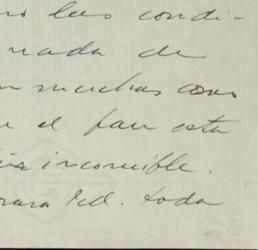 no las condi-
nada de
muchas cosas
el pan esta
incomible.
para Ud. toda